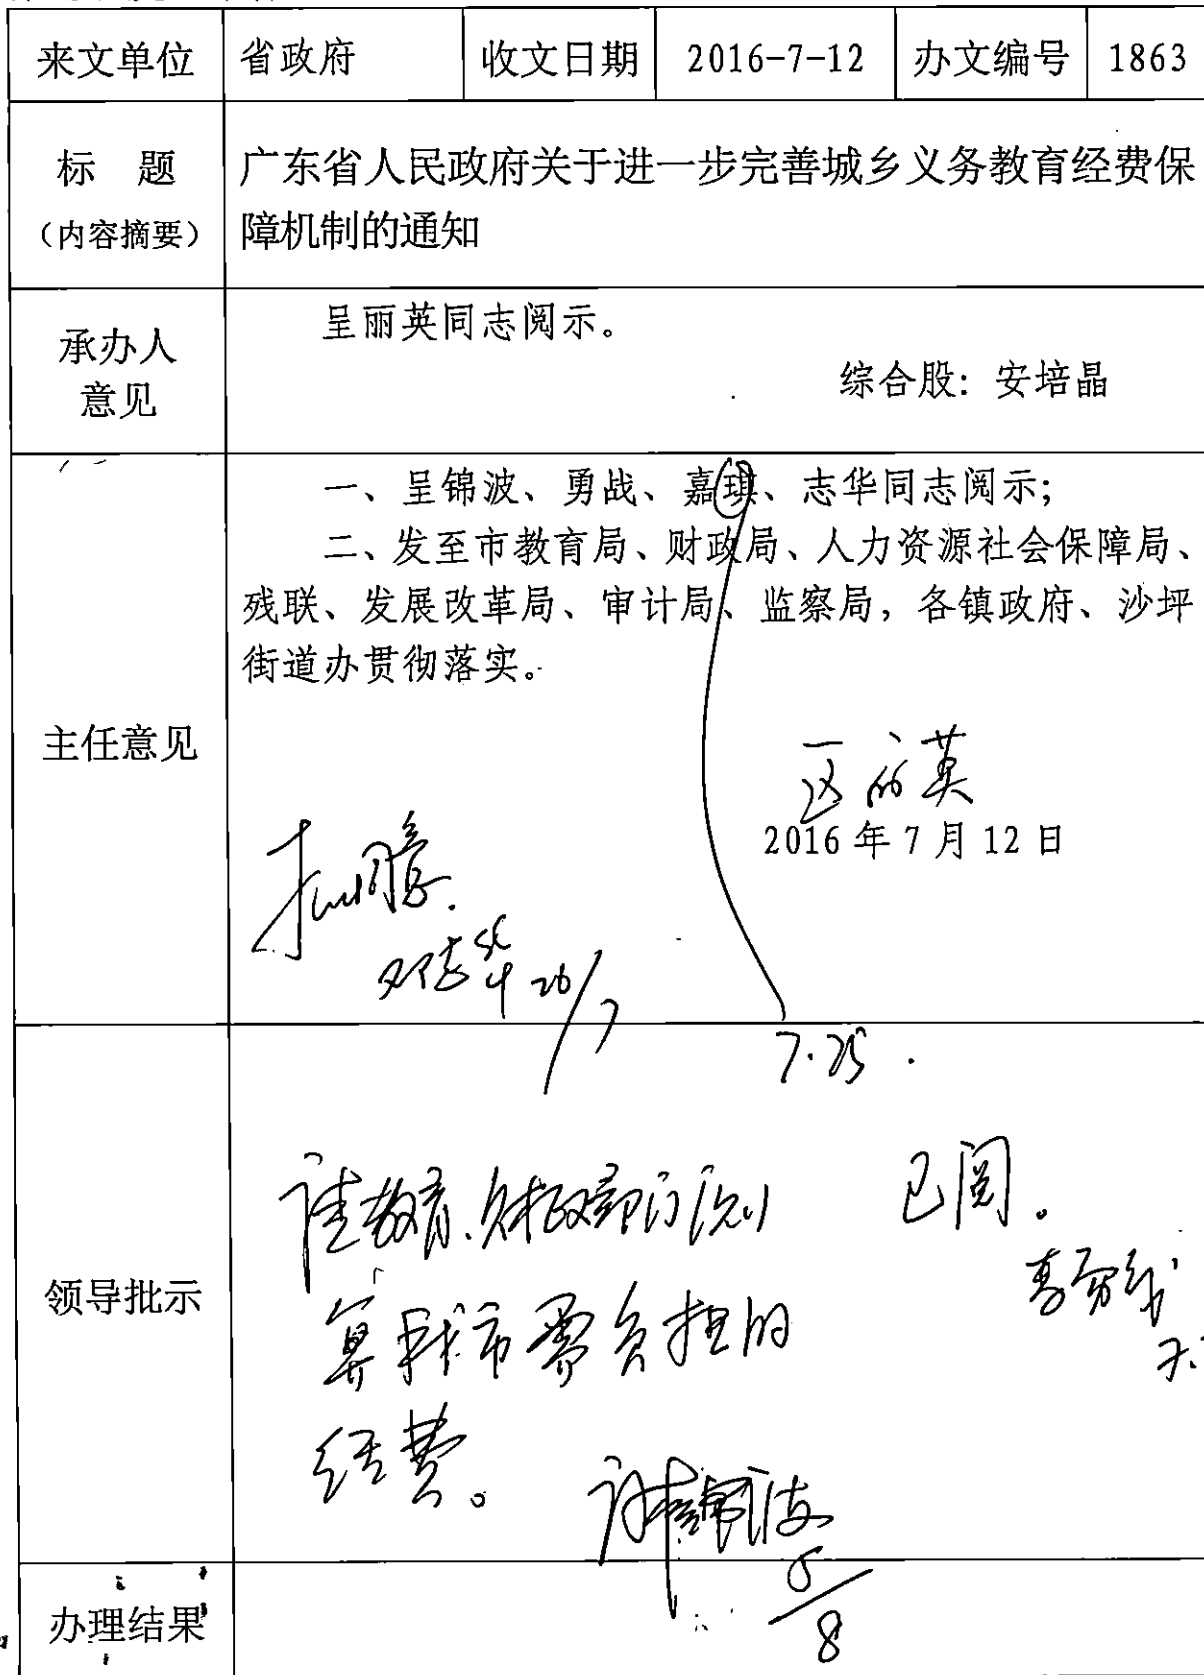 来文单位 省政府 收文日期 2016-7-12 办文编号 1863
标 题
(内容摘要)
广东省人民政府关于进一步完善城乡义务教育经费保
障机制的通知
承办人
意见
呈丽英同志阅示。
综合股：安培晶
主任意见
一、呈锦波、勇战、嘉琪、志华同志阅示；
二、发至市教育局、财政局、人力资源社会保障局、
残联、发展改革局、审计局、监察局，各镇政府、沙坪
街道办贯彻落实。
区丽英
2016年7月12日
邓志华 26/7
7.25.
领导批示
请教育、财政部门测
算我市需负担的
经费。
已阅。
5/8
办理结果